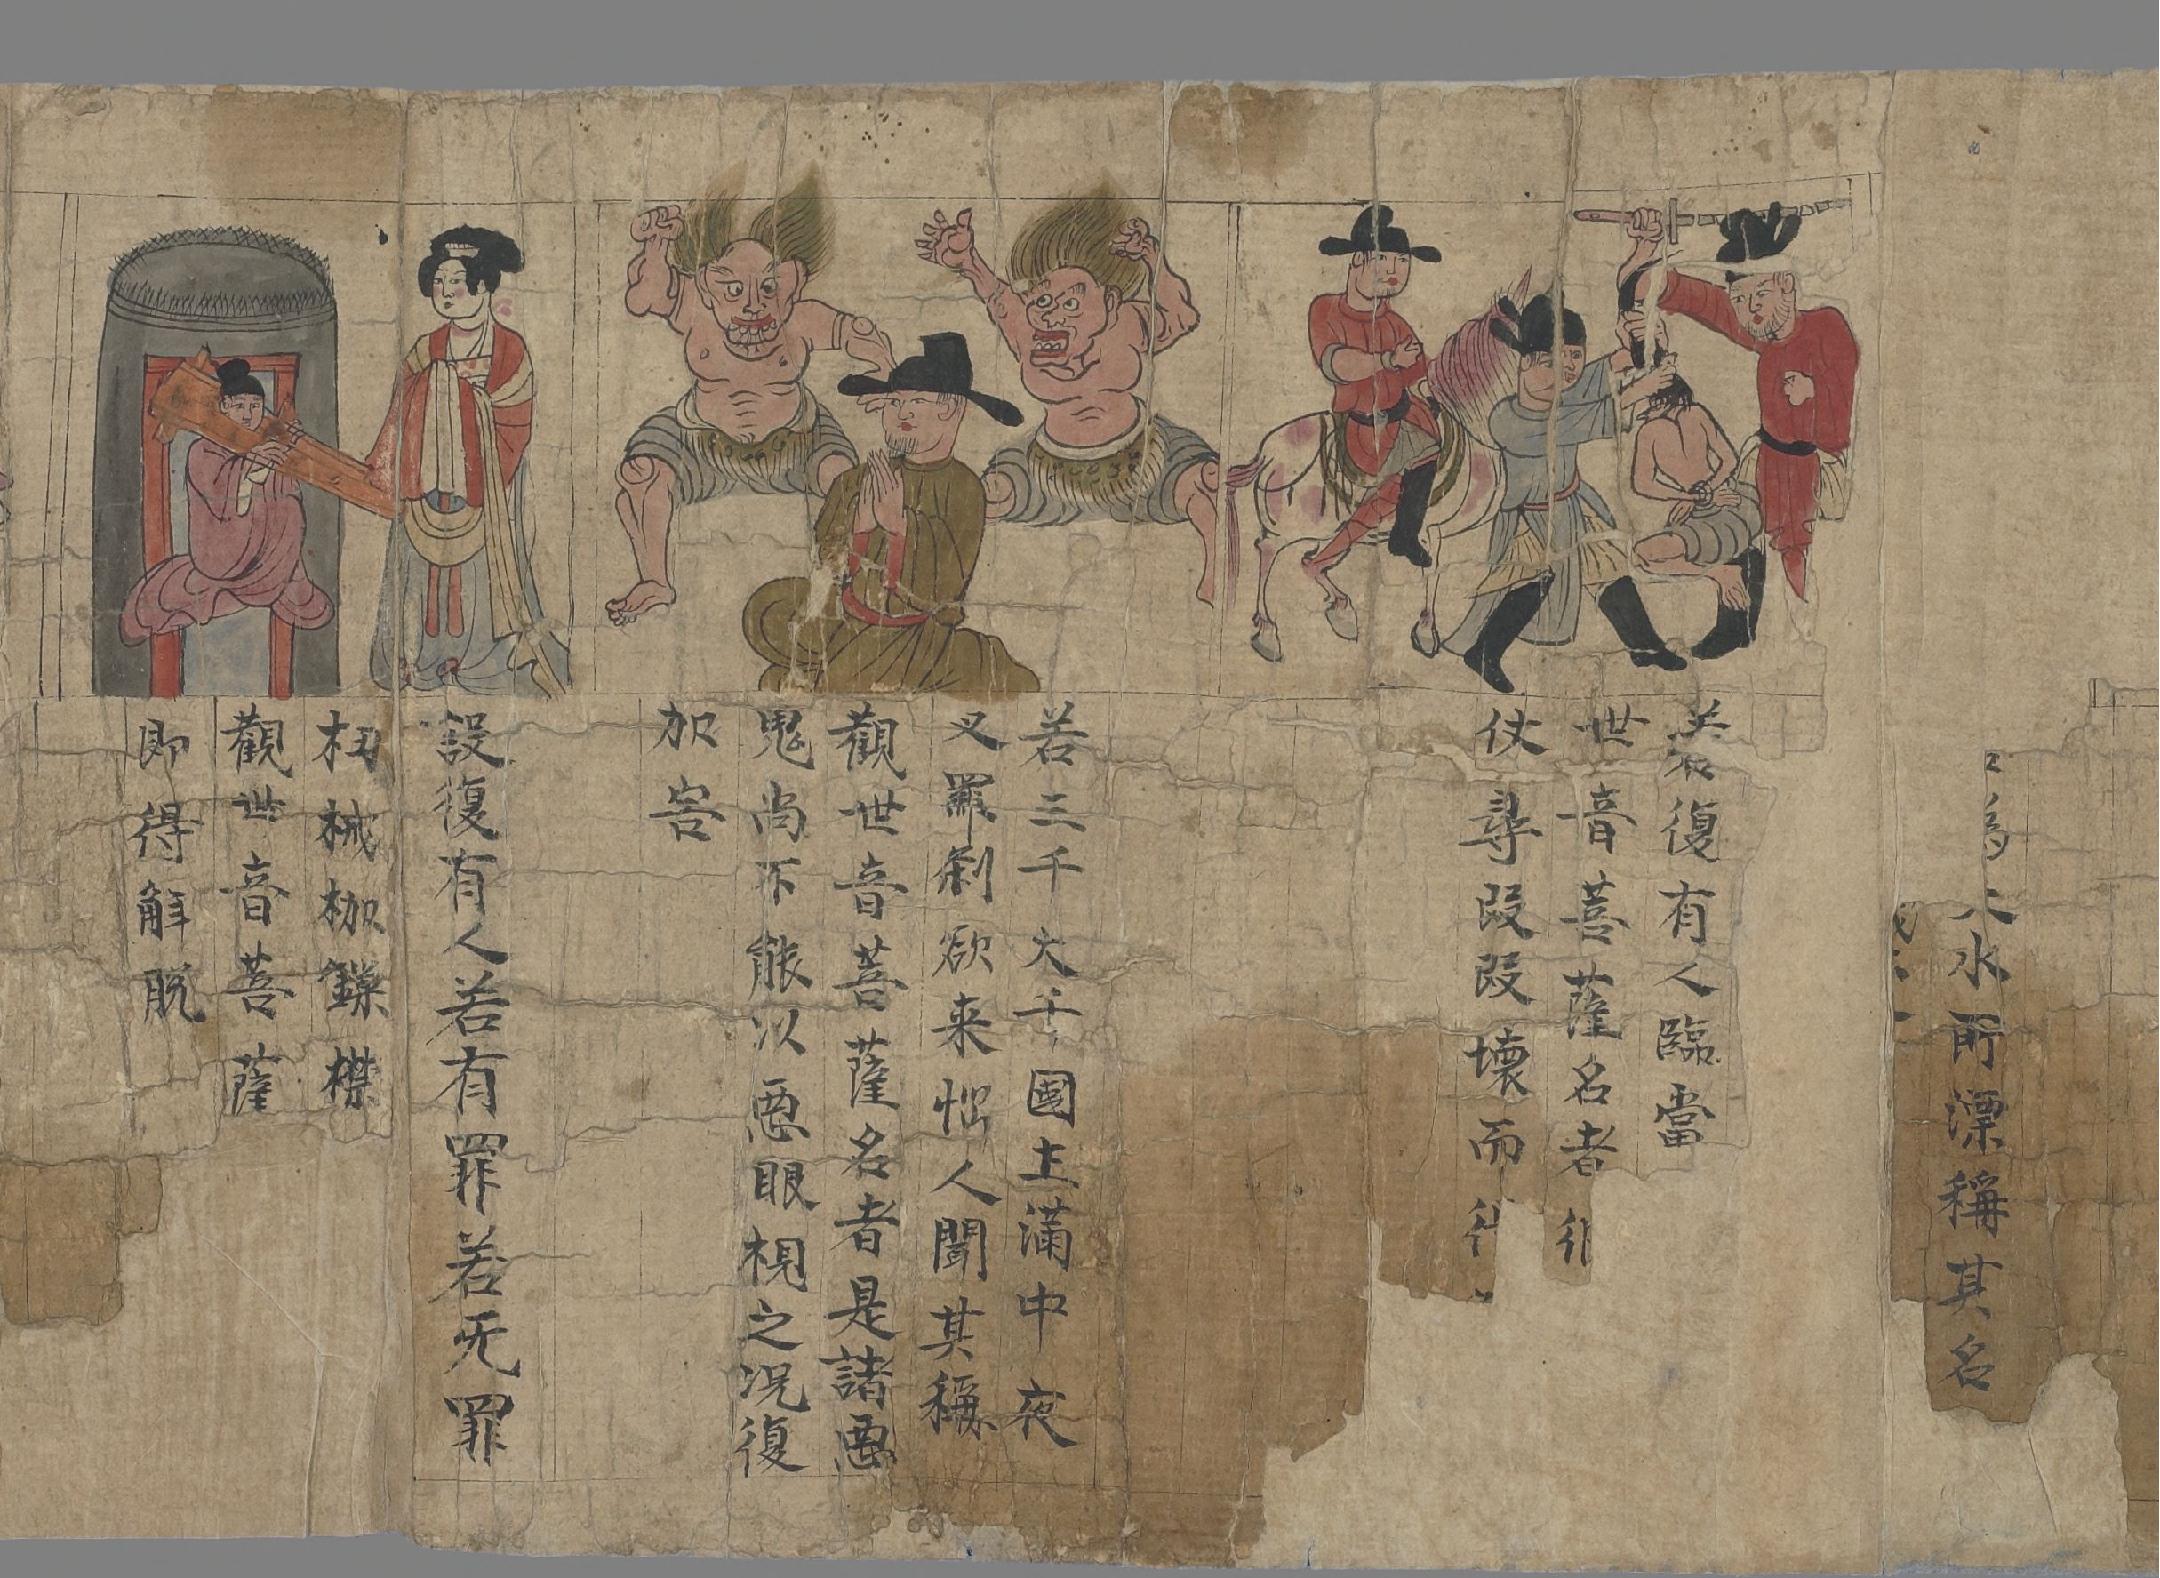 為大水所漂稱其名
若復有人臨當
世音菩薩名者彼
仗尋段段壞而得
若三千大千國土滿中夜
叉羅刹欲来惱人聞其稱
觀世音菩薩名者是諸惡
鬼尚不能以惡眼視之況復
加害
設復有人若有罪若无罪
杻械枷鏁檪
觀世音菩薩
即得解脱